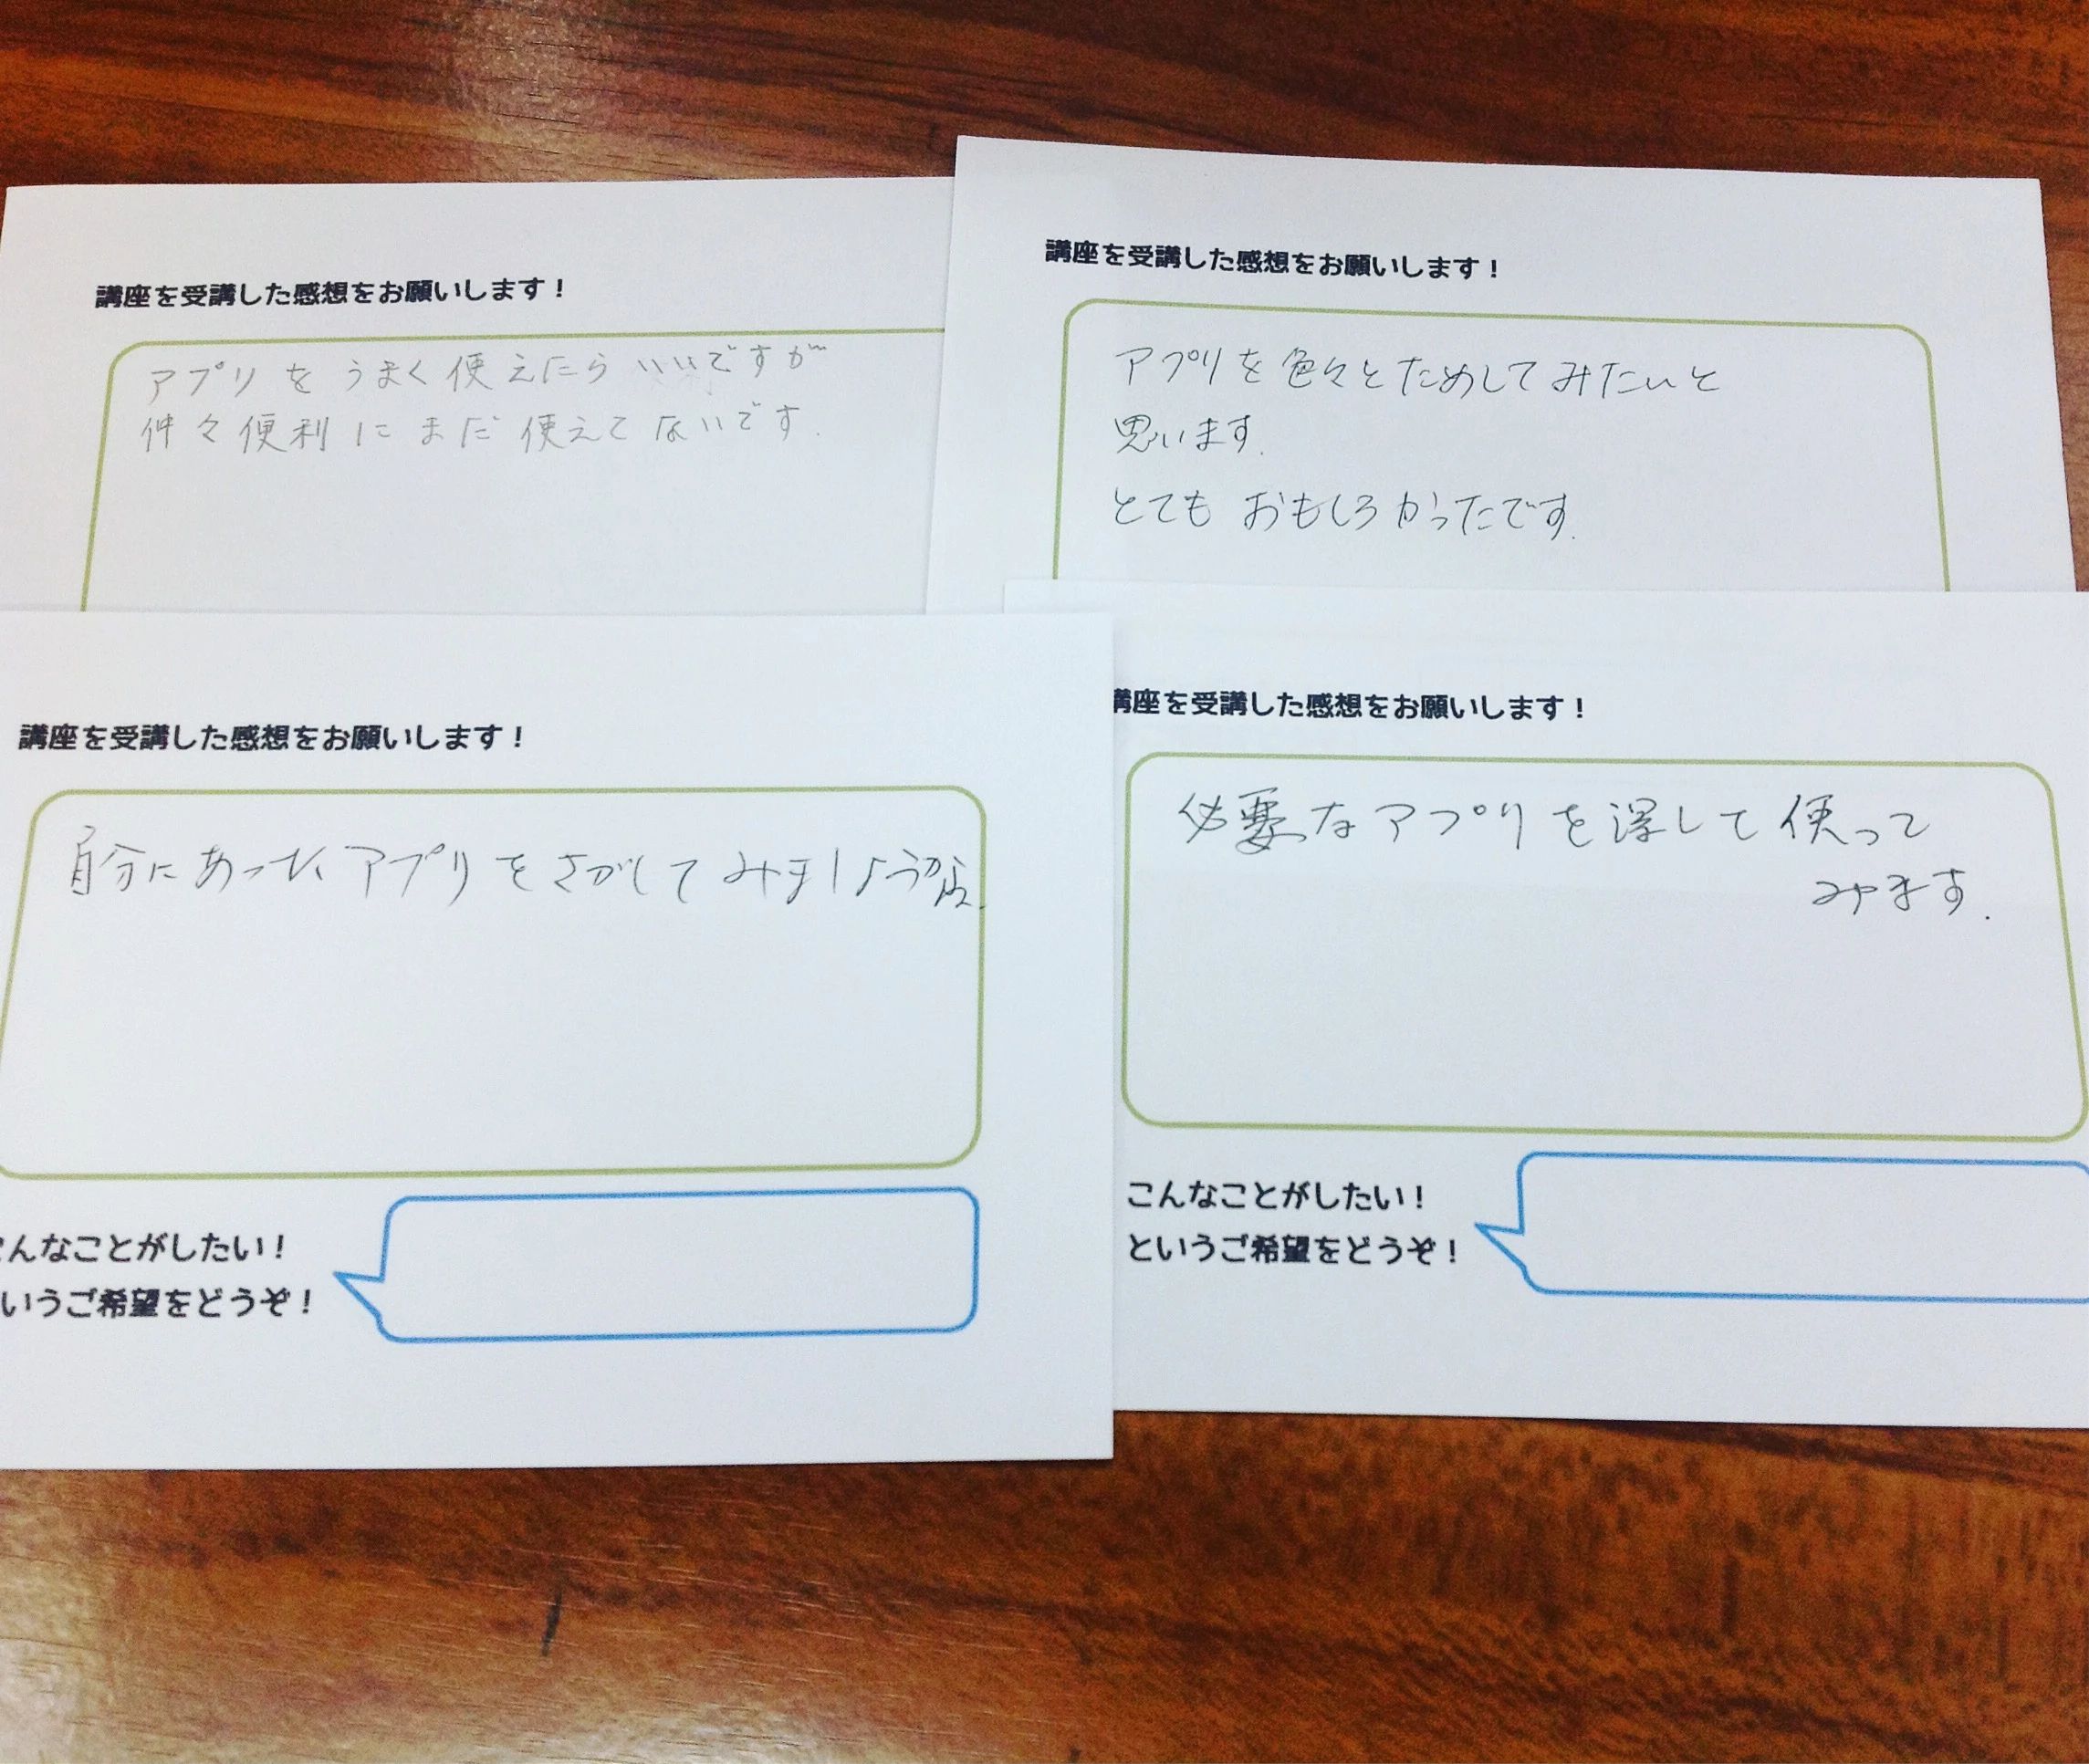 講座を受講した感想をお願いします！
アプリを うまく使えたら いいですが
仲々便利にまだ使えてないです.
講座を受講した感想をお願いします！
アプリを色々とためしてみたいと
思います.
とても おもしろかったです.
講座を受講した感想をお願いします！
自分にあった アプリをさがして みましょうかな.
んなことがしたい！
いうご希望をどうぞ！
講座を受講した感想をお願いします！
必要なアプリを深して使って
みます.
こんなことがしたい！
というご希望をどうぞ！